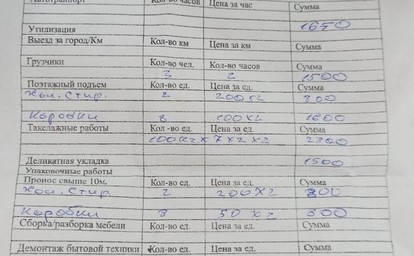 Автотранспорт Кол-во часов Цена за час Сумма
1650
Утилизация
Выезд за город/Км Кол-во км Цена за км Сумма
Грузчики Кол-во чел. Кол-во часов Сумма
3 2 1500
Поэтажный подъем Кол-во ед. Цена за ед. Сумма
Хол. Стир. 2 200x2 800
Коробки 8 100x2 1600
Такелажные работы Кол-во ед. Цена за ед. Сумма
100x2x7x2x2
Деликатная укладка 1500
Упаковочные работы
Пронос свыше 10м. Кол-во ед. Цена за ед. Сумма
Хол. Стир 2 200x2 800
Коробки 50 x2
Сборка/разборка мебели Кол-во ед. Цена за ед. Сумма
Демонтаж бытовой техники Кол-во ед. Цена за ед. Сумма